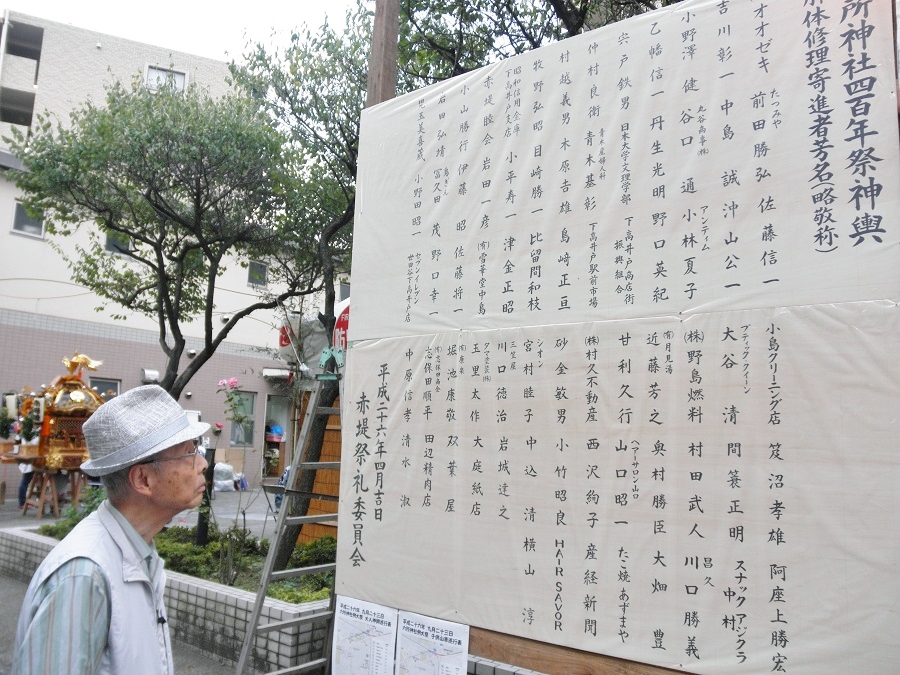 所神社四百年祭神輿
解体修理寄進者芳名(略敬称)
オオゼキ たつみや 前田勝弘 佐藤信一
吉川彰一 中島誠 沖山公一
小野澤健 谷口通 アンティム 小林夏子
乙幡信一 丹生光明 野口英紀
宍戸鉄男 日本大学文理学部 下高井戸商店街振興組合
仲村良衛 青木産婦人科 青木基彰 下高井戸駅前市場
村越義男 木原吉雄 島崎正亘
牧野弘昭 目崎勝一 比留間和枝
昭和信用金庫下高井戸支店 小平寿一 津金正昭
赤堤睦会 岩田一彦 (有)雪華堂中島
小山勝行 伊藤昭 佐藤将一
岩田弘靖 冨久田茂 野口幸一
児玉美喜蔵 小野田昭 セブンイレブン世田谷下高井戸店
小島クリーニング店 笈沼孝雄 阿座上勝宏
ブティッククイーン 大谷清 間箕正明 スナックアジクラ
(株)野島燃料 村田武人 昌久 川口勝義 中村
(有)月見湯 近藤芳之 奥村勝臣 大畑豊
甘利久行 ヘアーサロン山口 山口昭一 たこ焼あずまや
(株)村久不動産 西沢絢子 産経新聞
砂金敏男 小竹昭良 HAIR SAVOR
シオン 宮村睦子 中込清 横山淳
三笠屋 川口徳治 岩城達之
玉里太作 大庭紙店
堀池康敬 双葉屋
志保田順平 田辺精肉店
中原信孝 清水淑
平成二十六年四月吉日
赤堤祭礼委員会
平成二十六年 九月二十三日
平成二十六年 九月二十三日